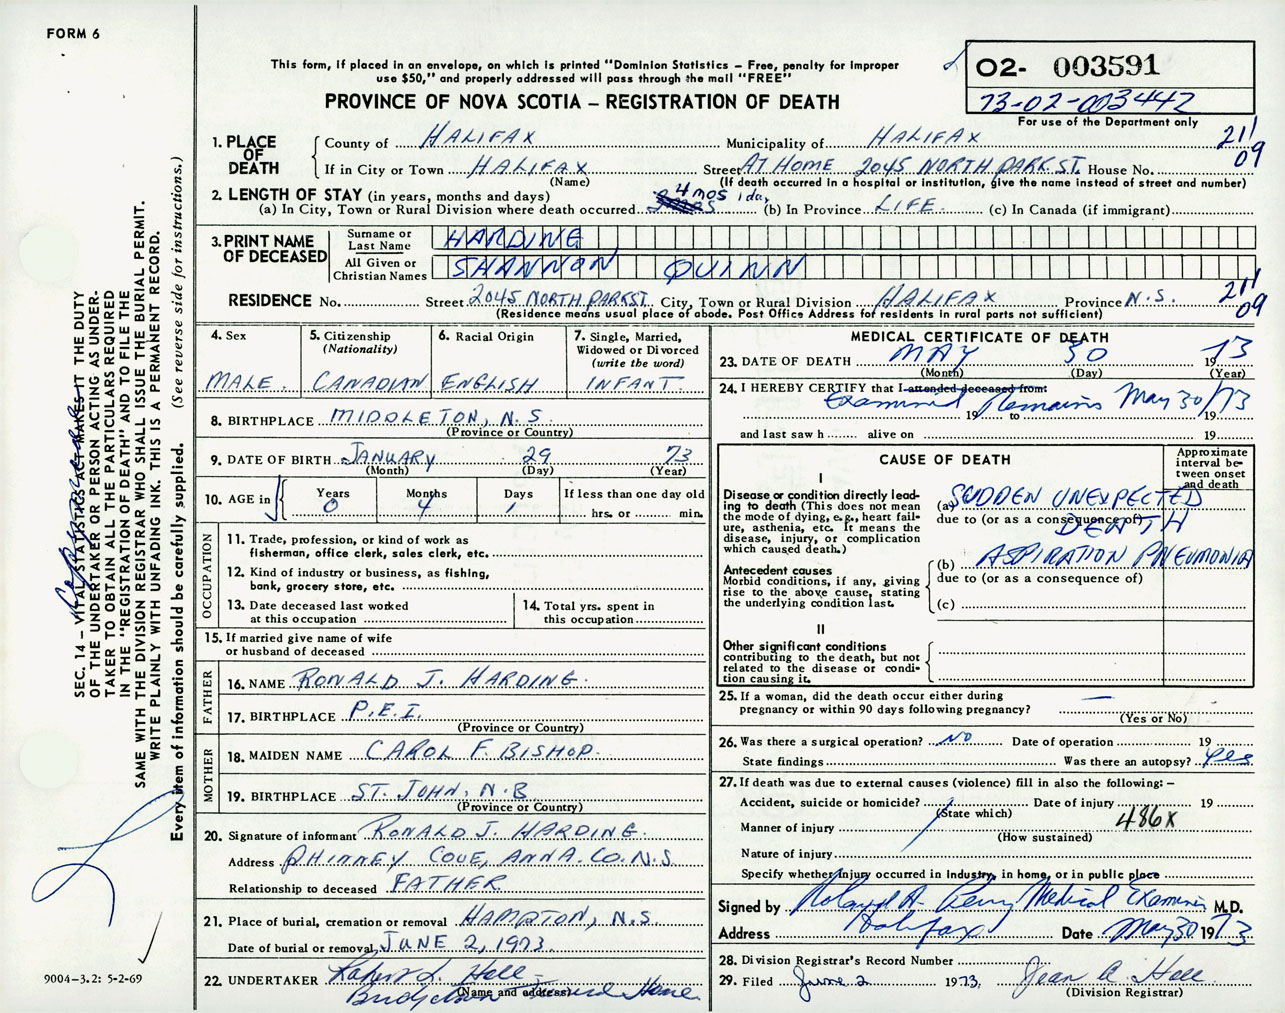 FORM 6
This form, if placed in an envelope, on which is printed "Dominion Statistics – Free, penalty for improper
use $50," and properly addressed will pass through the mail "FREE"
PROVINCE OF NOVA SCOTIA – REGISTRATION OF DEATH
02- 003591
73-02-003442
For use of the Department only
1. PLACE OF DEATH
County of HALIFAX Municipality of HALIFAX 211
If in City or Town HALIFAX Street AT HOME 2045 NORTH PARK ST. House No. 09
(Name) (If death occurred in a hospital or institution, give the name instead of street and number)
2. LENGTH OF STAY (in years, months and days) 4 mos 1 da.
(a) In City, Town or Rural Division where death occurred (b) In Province LIFE. (c) In Canada (if immigrant)
3. PRINT NAME OF DECEASED
Surname or Last Name HARDING
All Given or Christian Names SHANNON QUINN
RESIDENCE No. Street 2045 NORTH PARK ST City, Town or Rural Division HALIFAX Province N.S. 211 09
(Residence means usual place of abode. Post Office Address for residents in rural parts not sufficient)
4. Sex
MALE.
5. Citizenship
(Nationality)
CANADIAN
6. Racial Origin
ENGLISH
7. Single, Married,
Widowed or Divorced
(write the word)
INFANT
8. BIRTHPLACE MIDDLETON, N.S.
(Province or Country)
9. DATE OF BIRTH JANUARY 29 73
(Month) (Day) (Year)
10. AGE in
Years 0
Months 4
Days 1
If less than one day old
hrs. or min.
OCCUPATION
11. Trade, profession, or kind of work as
fisherman, office clerk, sales clerk, etc.
12. Kind of industry or business, as fishing,
bank, grocery store, etc.
13. Date deceased last worked
at this occupation
14. Total yrs. spent in
this occupation
15. If married give name of wife
or husband of deceased
FATHER
16. NAME RONALD J. HARDING.
17. BIRTHPLACE P.E.I.
(Province or Country)
MOTHER
18. MAIDEN NAME CAROL F. BISHOP.
19. BIRTHPLACE ST. JOHN, N.B
(Province or Country)
20. Signature of informant RONALD J. HARDING.
Address PHINNEY COVE, ANNA. CO. N.S.
Relationship to deceased FATHER
21. Place of burial, cremation or removal HAMPTON, N.S.
Date of burial or removal JUNE 2, 1973
22. UNDERTAKER Robert L. Hall
(Name and address)
Home
MEDICAL CERTIFICATE OF DEATH
23. DATE OF DEATH MAY 30 1973
(Month) (Day) (Year)
24. I HEREBY CERTIFY that I attended deceased from:
Examined Remains May 30/73
19 to 19
and last saw h alive on 19
CAUSE OF DEATH
Approximate
interval be-
tween onset
and death
I
Disease or condition directly lead-
ing to death (This does not mean
the mode of dying, e.g., heart fail-
ure, asthenia, etc. It means the
disease, injury, or complication
which caused death.)
(a) SUDDEN UNEXPECTED
due to (or as a consequence of)
DEATH
Antecedent causes
Morbid conditions, if any, giving
rise to the above cause, stating
the underlying condition last.
(b) ASPIRATION PNEUMONIA
due to (or as a consequence of)
(c)
II
Other significant conditions
contributing to the death, but not
related to the disease or condi-
tion causing it.
25. If a woman, did the death occur either during
pregnancy or within 90 days following pregnancy? —
(Yes or No)
26. Was there a surgical operation? No Date of operation 19
State findings Was there an autopsy? Yes
27. If death was due to external causes (violence) fill in also the following: –
Accident, suicide or homicide? Date of injury 19
(State which)
Manner of injury 486X
(How sustained)
Nature of injury
Specify whether injury occurred in industry, in home, or in public place
Signed by Roland A. Perry Medical Examiner M.D.
Address Halifax Date May 30 1973
28. Division Registrar's Record Number
29. Filed June 2 1973. Jean A. Hall
(Division Registrar)
SEC. 14 – VITAL STATISTICS ACT MAKES IT THE DUTY
OF THE UNDERTAKER OR PERSON ACTING AS UNDER-
TAKER TO OBTAIN ALL THE PARTICULARS REQUIRED
IN THE "REGISTRATION OF DEATH" AND TO FILE THE
SAME WITH THE DIVISION REGISTRAR WHO SHALL ISSUE THE BURIAL PERMIT.
WRITE PLAINLY WITH UNFADING INK. THIS IS A PERMANENT RECORD.
Every item of information should be carefully supplied. (See reverse side for instructions.)
9004–3.2: 5-2-69